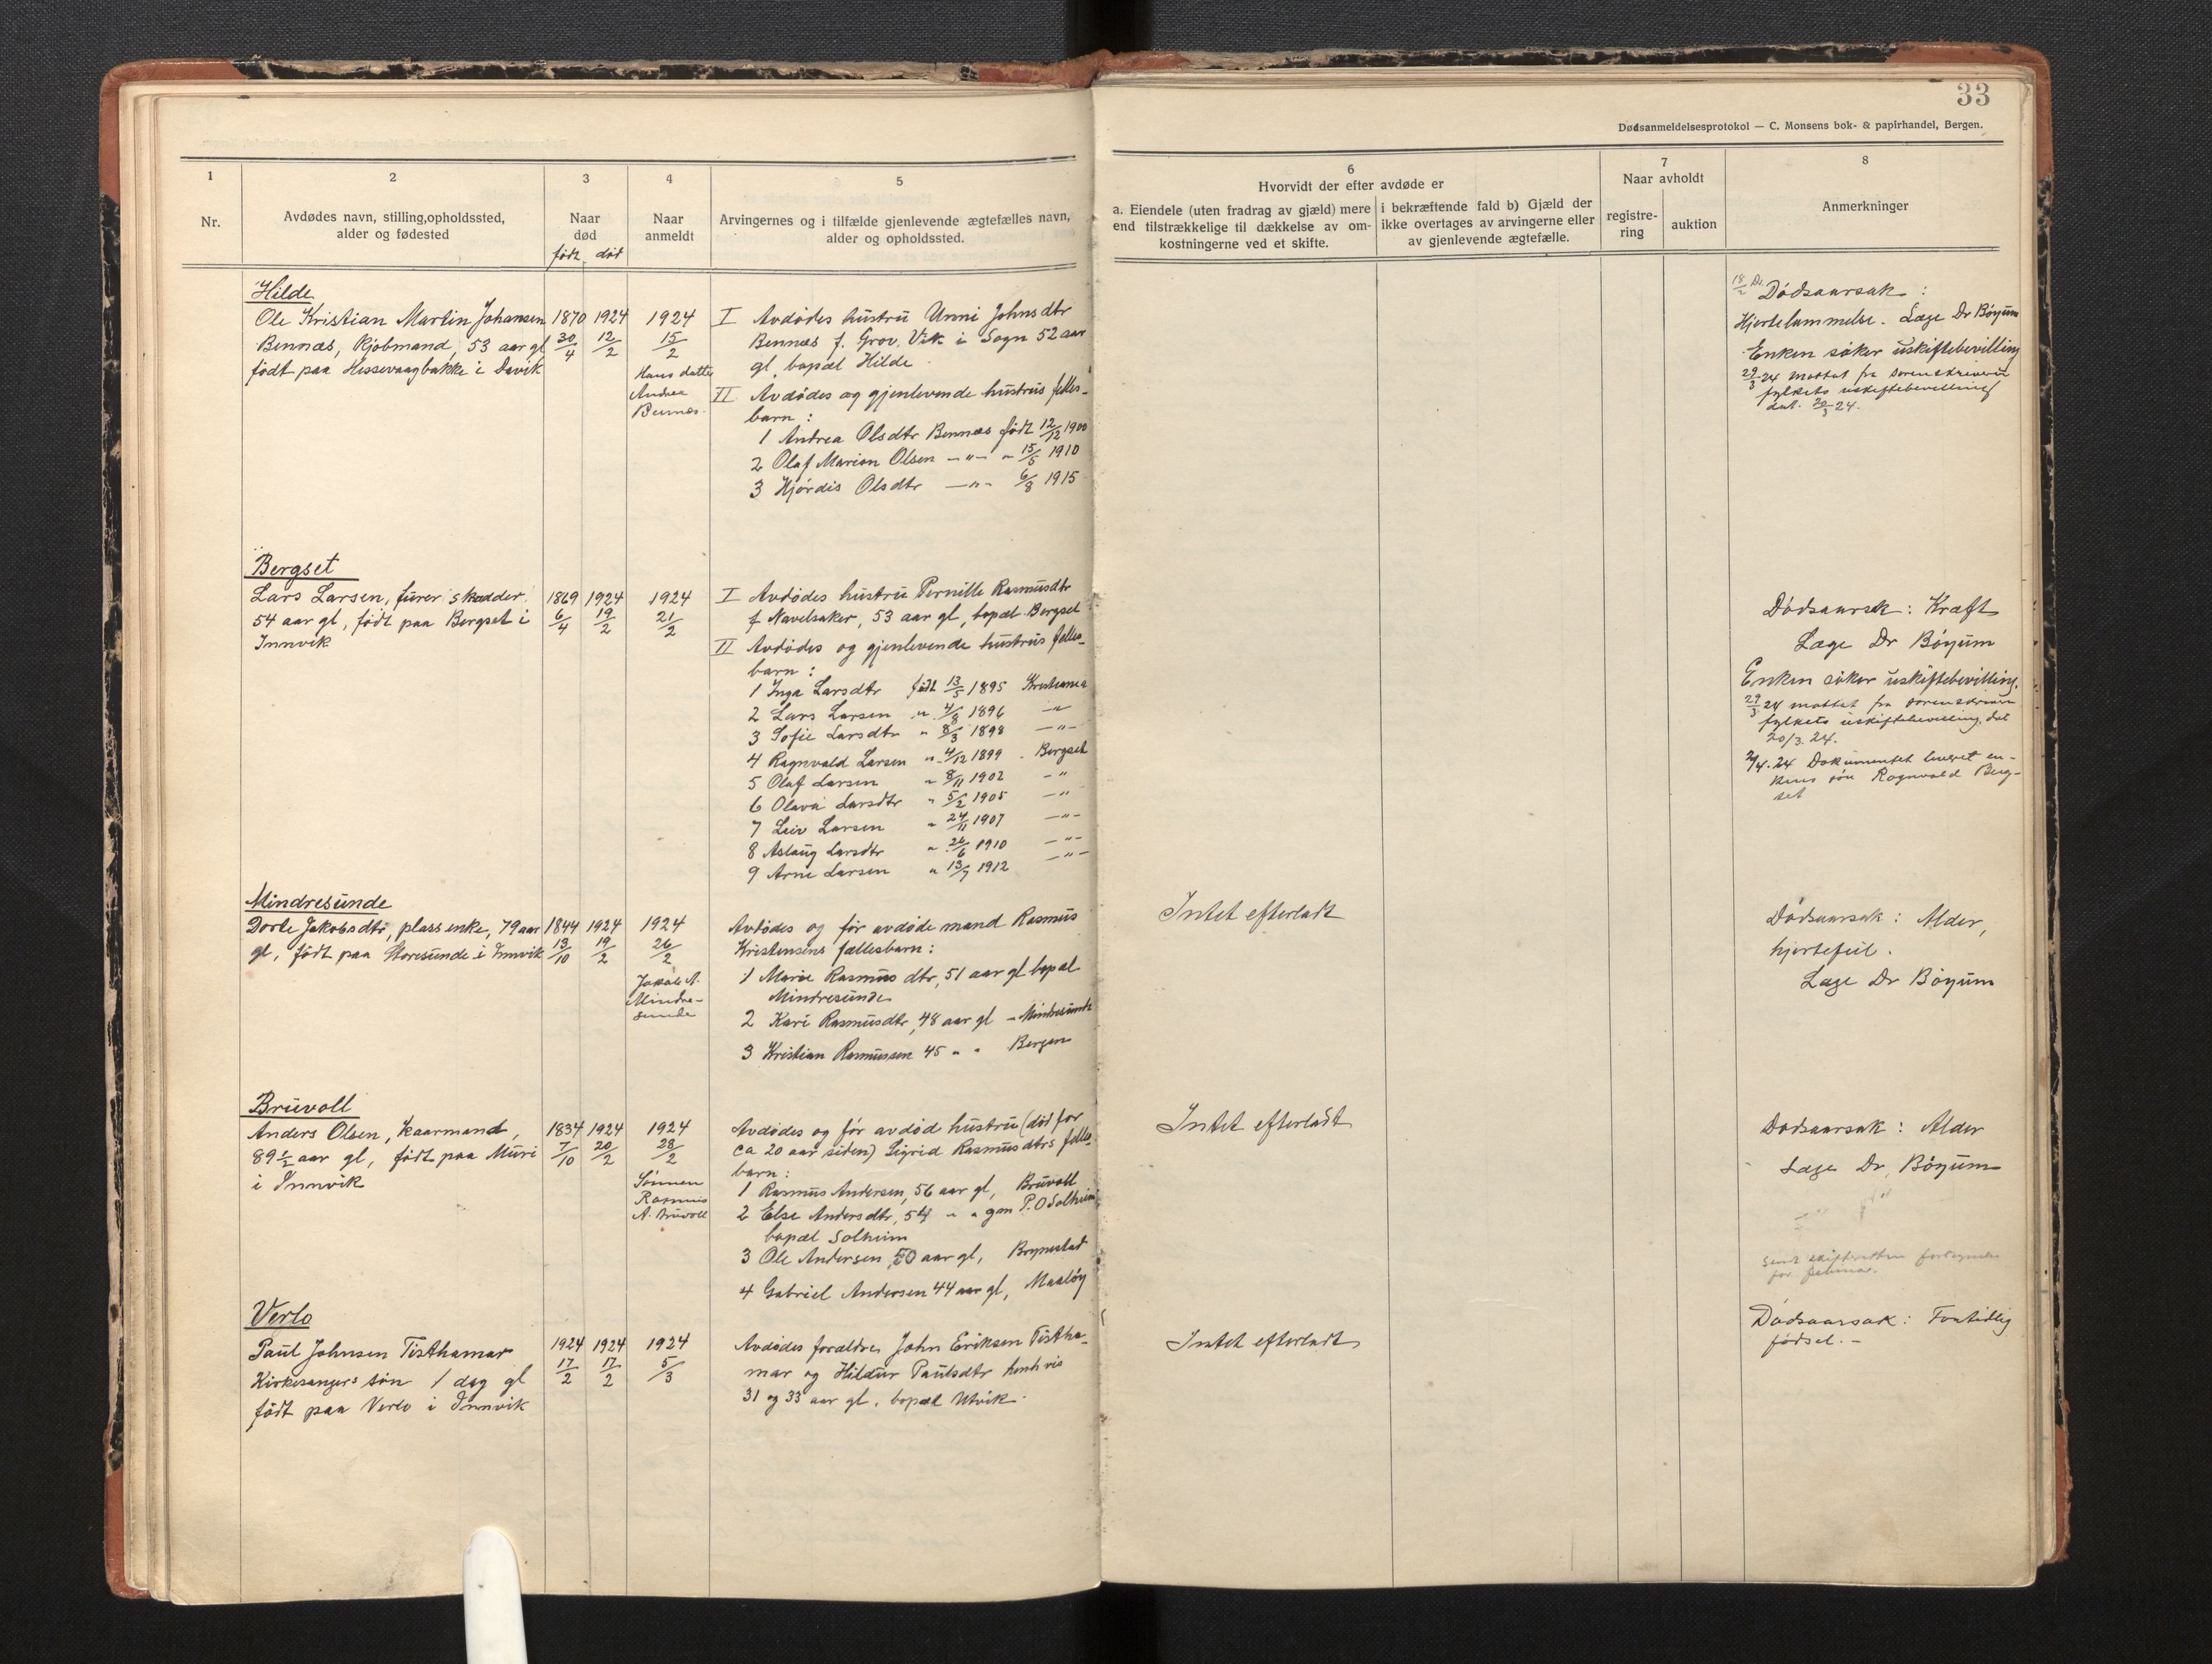 33
Dødsanmeldelsesprotokol — C. Monsens bok- & papirhandel, Bergen.
1
Nr.
2
Avdødes navn, stilling, opholdssted,
alder og fødested
3
Naar
død
født død
4
Naar
anmeldt
5
Arvingernes og i tilfælde gjenlevende ægtefælles navn,
alder og opholdssted.
6
Hvorvidt der efter avdøde er
a. Eiendele (uten fradrag av gjæld) mere
end tilstrækkelige til dækkelse av om-
kostningerne ved et skifte.
i bekræftende fald b) Gjæld der
ikke overtages av arvingerne eller
av gjenlevende ægtefælle.
7
Naar avholdt
registre-
ring
auktion
8
Anmerkninger
Hilde
Ole Kristian Martin Johansen
Bennæs, Kjøbmand, 53 aar gl
født paa Hessevaagbakke i Davik
1870 1924
30/4 12/2
1924
15/2
Hans datter
Andrea
Bennæs.
I Avdødes hustru Unni Johnsdtr
Bennæs f. Grov, Vik i Sogn 52 aar
gl, bopæl Hilde
II Avdødes og gjenlevende hustrus felles-
barn :
1 Andrea Olsdtr Bennæs født 12/12 1900
2 Olaf Marion Olsen —"— " 15/5 1910
3 Hjørdis Olsdtr —"— 6/8 1915
18/2 Dr.
Dødsaarsak :
Hjertelammelse. Læge Dr Bøyum
Enken søker uskiftebevilling
29/3 24 mottat fra sorenskriveren
fylkets uskiftebevilling
dat. 20/3 24.
Bergset
Lars Larsen, furer, skrædder,
54 aar gl, født paa Bergset i
Innvik
1869 1924
6/4 19/2
1924
21/2
I Avdødes hustru Pernille Rasmusdtr
f Navelsaker, 53 aar gl, bopæl Bergset
II Avdødes og gjenlevende hustrus felles-
barn :
1 Inga Larsdtr født 13/5 1895 Kristiania
2 Lars Larsen " 4/8 1896 —"
3 Sofie Larsdtr " 8/3 1898 —"—
4 Ragnvald Larsen " 4/12 1899 . Bergset
5 Olaf Larsen " 8/11 1902 —"
6 Olava Larsdtr " 5/2 1905 —"
7 Leiv Larsen " 24/11 1907 —"—
8 Aslaug Larsdtr " 26/6 1910 —"—
9 Arne Larsen " 13/7 1912 —"—
Dødsaarsak : Kræft
Læge Dr Bøyum
Enken søker uskiftebevilling.
29/3 24 mottat fra sorenskriveren
fylkets uskiftebevilling, dat
20/3. 24.
2/4. 24 Dokumentet leveret en-
kens søn Ragnvald Berg-
set
Mindresunde
Dorte Jakobsdtr, plassenke, 79 aar
gl, født paa Storesunde i Innvik
1844 1924
13/10 19/2
1924
26/2
Jakob A.
Mindre-
sunde
Avdødes og før avdøde mand Rasmus
Kristensens fællesbarn :
1 Marie Rasmus dtr, 51 aar gl bopæl
Mindresunde
2 Kari Rasmusdtr, 48 aar gl " Mindresunde
3 Kristian Rasmussen 45 " " Bergen
Intet efterladt
Dødsaarsak : Alder,
hjertefeil.
Læge Dr Bøyum
Bruvoll
Anders Olsen, kaarmand,
89 1/2 aar gl, født paa Muri
i Innvik
1834 1924
7/10 20/2
1924
28/2
Sønnen
Rasmus
A. Bruvoll
Avdødes og før avdød hustru (død for
ca 20 aar siden) Sigrid Rasmusdtrs felles-
barn :
1 Rasmus Andersen, 56 aar gl, Bruvoll
2 Else Andersdtr, 54 " " gm P. O Solheim,
bopæl Solheim
3 Ole Andersen 50 aar gl, Brynestad
4 Gabriel Andersen 44 aar gl, Maaløy
Intet efterladt
Dødsaarsak : Alder
Læge Dr. Bøyum
Sendt skifteretten fortegnelse
for februar.
Verlo
Paul Johnsen Tisthamar
Kirkesangers søn 1 dag gl
født paa Verlo i Innvik
1924 1924
17/2 17/2
1924
5/3
Avdødes forældre, John Eriksen Tistha-
mar og Hildur Paulsdtr henhvis
31 og 33 aar gl. bopæl Utvik.
Intet efterladt
Dødsaarsak : Fortidlig
fødsel. —